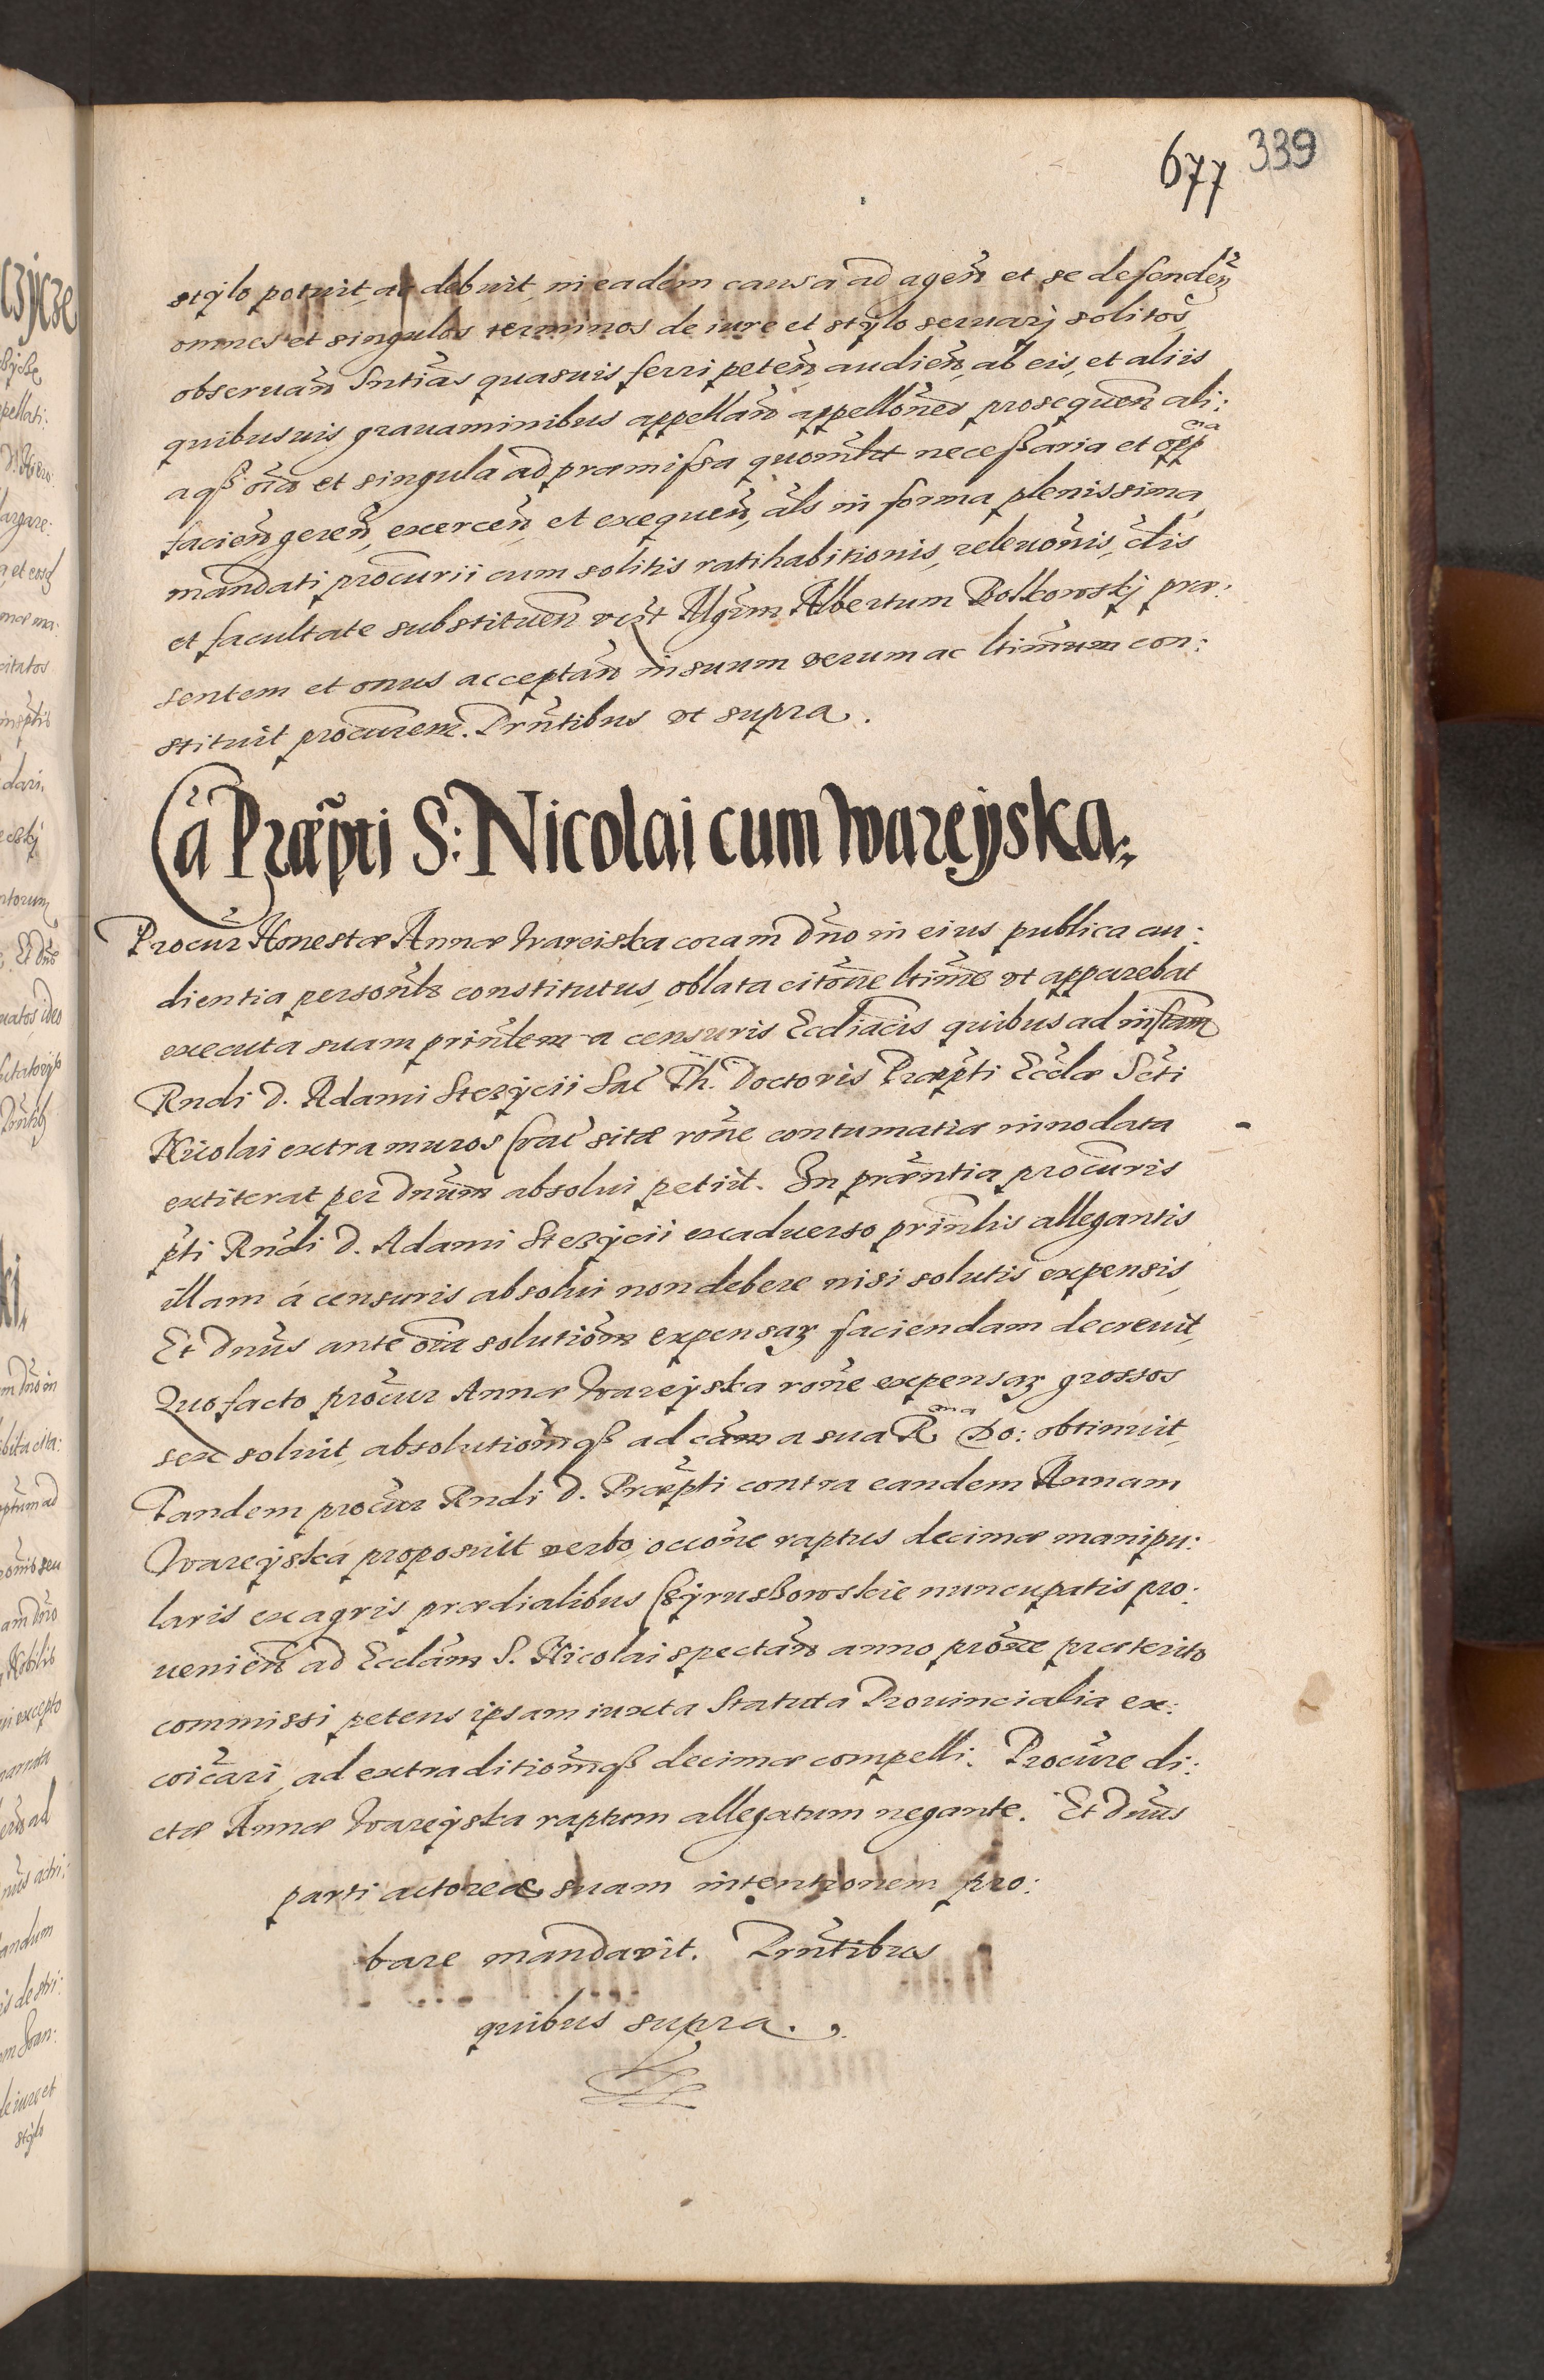 677 339
stÿlo potuit, ac debuit, in eadem causa ad agen̄ et se defenden̄
omnes et singulos terminos de iure et stÿlo seruarj solitos
obseruan̄ Sntīas quasuis ferri peten̄ audien̄, ab eis, et aliis
quibusuis grauaminibus appellan̄ appellōnes prosequen̄ ali:
aqꝫ oīa et singula ad præmissa quomlt necessaria et opp̄na
facien̄ geren̄, exercen̄, et exequen̄, als in forma plenissima
mandati procurii cum solitis ratihabitionis, releuōnis, clis
et facultate substituen̄ vist Mgrm Albertum Bolkowskj præ:
sentem et onus acceptan̄ in suum verum ac ltimum con:
stituit procurem. Prn̄tibus vt supra.
Cā Præpti S: Nicolai cum Wareÿska.
Procur Honestæ Annæ Wareiska coram Dn̄o in eius publica au:
dientia personlr constitutus, oblata citōne ltime vt apparebat
executa suam prinlem a censuris Ecclīacis quibus ad instam
Rndi D. Adami Stezÿcii Sac Th. Doctoris Præpti Eccliæ Scti
Nicolai extra muros Crac sitæ rōne contumatiæ innodata
extiterat per Dnūm absolui petiit. In præntia procuris
pti Rndi D. Adami Stezÿcii exaduerso prinlis allegantis
illam á censuris absolui non debere nisi solutis expensis,
Et Dnūs ante oīa solutiōm expensaꝝ faciendam decreuit,
Quo facto procur Annæ Wareÿska rōne expensaꝝ grossos
sex soluit, absolutiōmqꝫ ad cām a sua Rma Do: obtinuit,
Tandem procur Rndi D. Præpti contra eandem Annam
Wareÿska proposuit verbo, occōne raptus decimæ manipu:
laris ex agris prædialibus Czÿruskowskie nuncupatis pro:
uenien̄ ad Ecclām S. Nicolai spectan̄ anno proxe præterito
commissi petens ipsam iuxta Statuta Prouincialia ex:
coīcari, ad extraditiōmqꝫ decimæ compelli. Procure di:
ctæ Annæ Wareÿska raptum allegatum negante. Et Dnūs
parti actoreæ suam intentionem pro:
bare mandavit. Prn̄tibus
quibus supra.